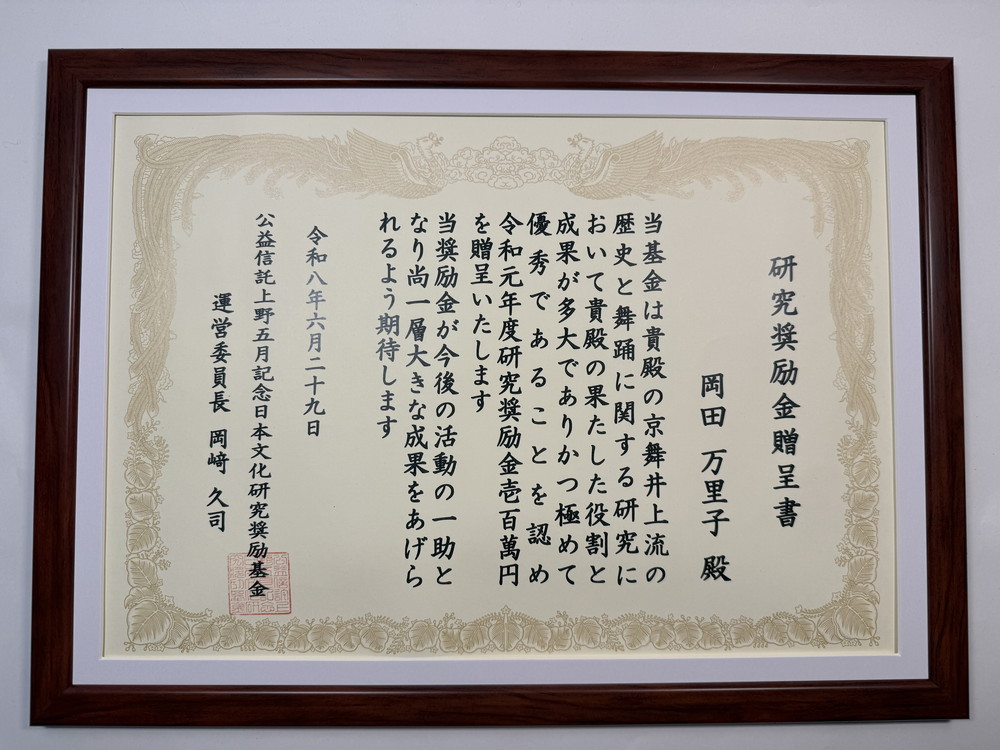 研究奨励金贈呈書
岡田 万里子 殿
当基金は貴殿の京舞井上流の
歴史と舞踊に関する研究に
おいて貴殿の果たした役割と
成果が多大でありかつ極めて
優秀であることを認め
令和元年度研究奨励金壱百萬円
を贈呈いたします
当奨励金が今後の活動の一助と
なり尚一層大きな成果をあげら
れるよう期待します
令和八年六月二十九日
公益信託上野五月記念日本文化研究奨励基金
運営委員長 岡﨑 久司